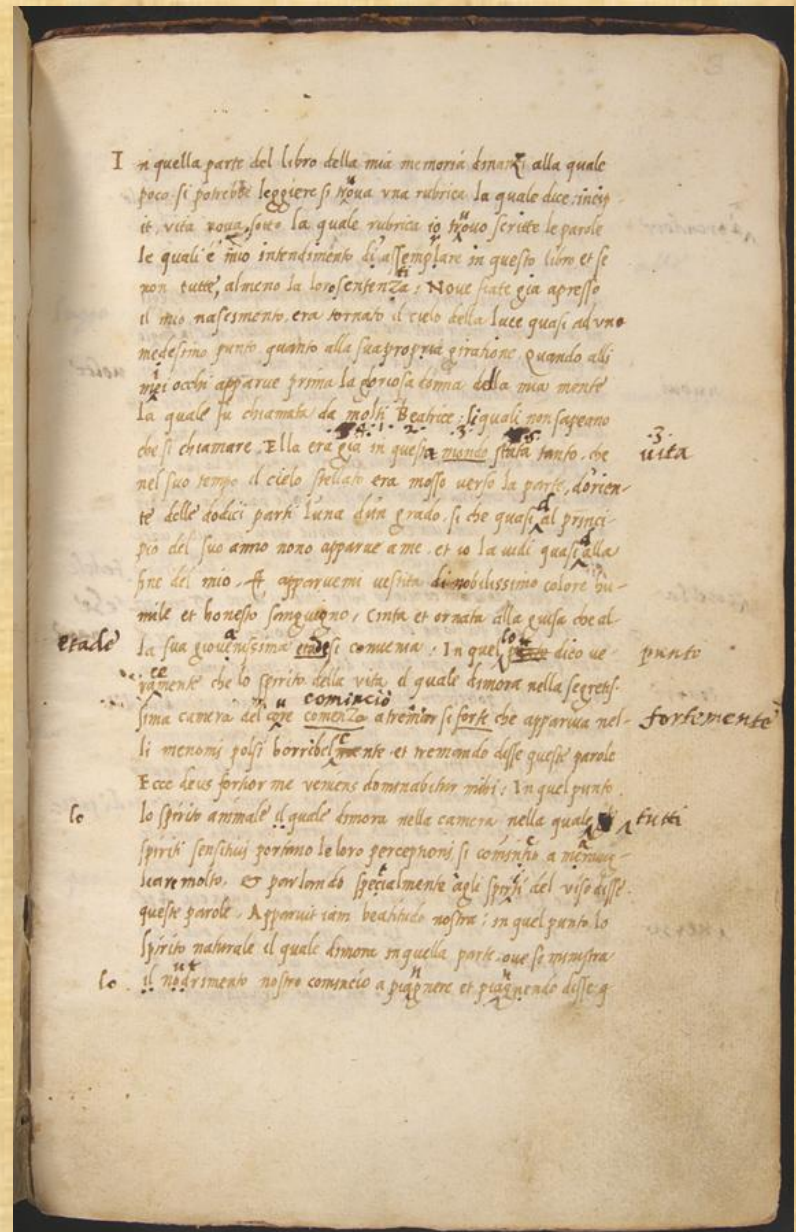 In quella parte del libro della mia memoria dinanzi alla quale
poco si potrebbe leggiere si trova vna rubrica la quale dice incip
it, vita nova, sotto la quale rubrica io trovo scritte le parole
le quali é mio intendimento di assemplare in questo libro et se
non tutte, almeno la loro sentenza: Nove fiate gia apresso
ti
il mio nascimento, era tornato il cielo della luce quasi ad vno
medesimo punto, quanto alla sua propria giratione Quando alli
miei occhi apparue prima la gloriosa donna della mia mente
la quale fu chiamata da molti Beatrice: li quali non sapeano
che si chiamare, Ella era gia in questa mondo stata tanto, che
3
uita
nel suo tempo il cielo stellato era mosso verso la parte, dorien-
te delle dodici parti luna dun grado, si che quasi al princi-
d
pio del suo anno nono apparue a me, et io la vidi quasi alla
d
fine del mio, Et, apparuemi vestita di nobilissimo colore hu-
mile et honesto sanguigno, cinta et ornata alla guisa che al-
etade
la sua giovenissima etade si convenia: In quel punto dico ve-
a
lo
punto
ramente che lo spirito della vita il quale dimora nella segretis-
ce
sima camera del core comenzo a tremar si forte che appariva nel-
u
cominciò
fortemente
li menomi polsi horribelmente et tremando disse queste parole
Ecce deus fortior me veniens dominabitur mihi: In quel punto
lo
lo spirito animale il quale dimora nella camera nella quale
tutti
spiriti sensitiui portano le loro perceptioni si comintio a merauig-
liare molto, & parlando spetialmente agli spirti del viso disse
queste parole, Apparuit iam beatitudo nostra: in quel punto lo
spirito naturale il quale dimora in quella parte oue se ministra
lo
il nodrimento nostro comincio a piagnere et piagnendo disse q
ut
n
n